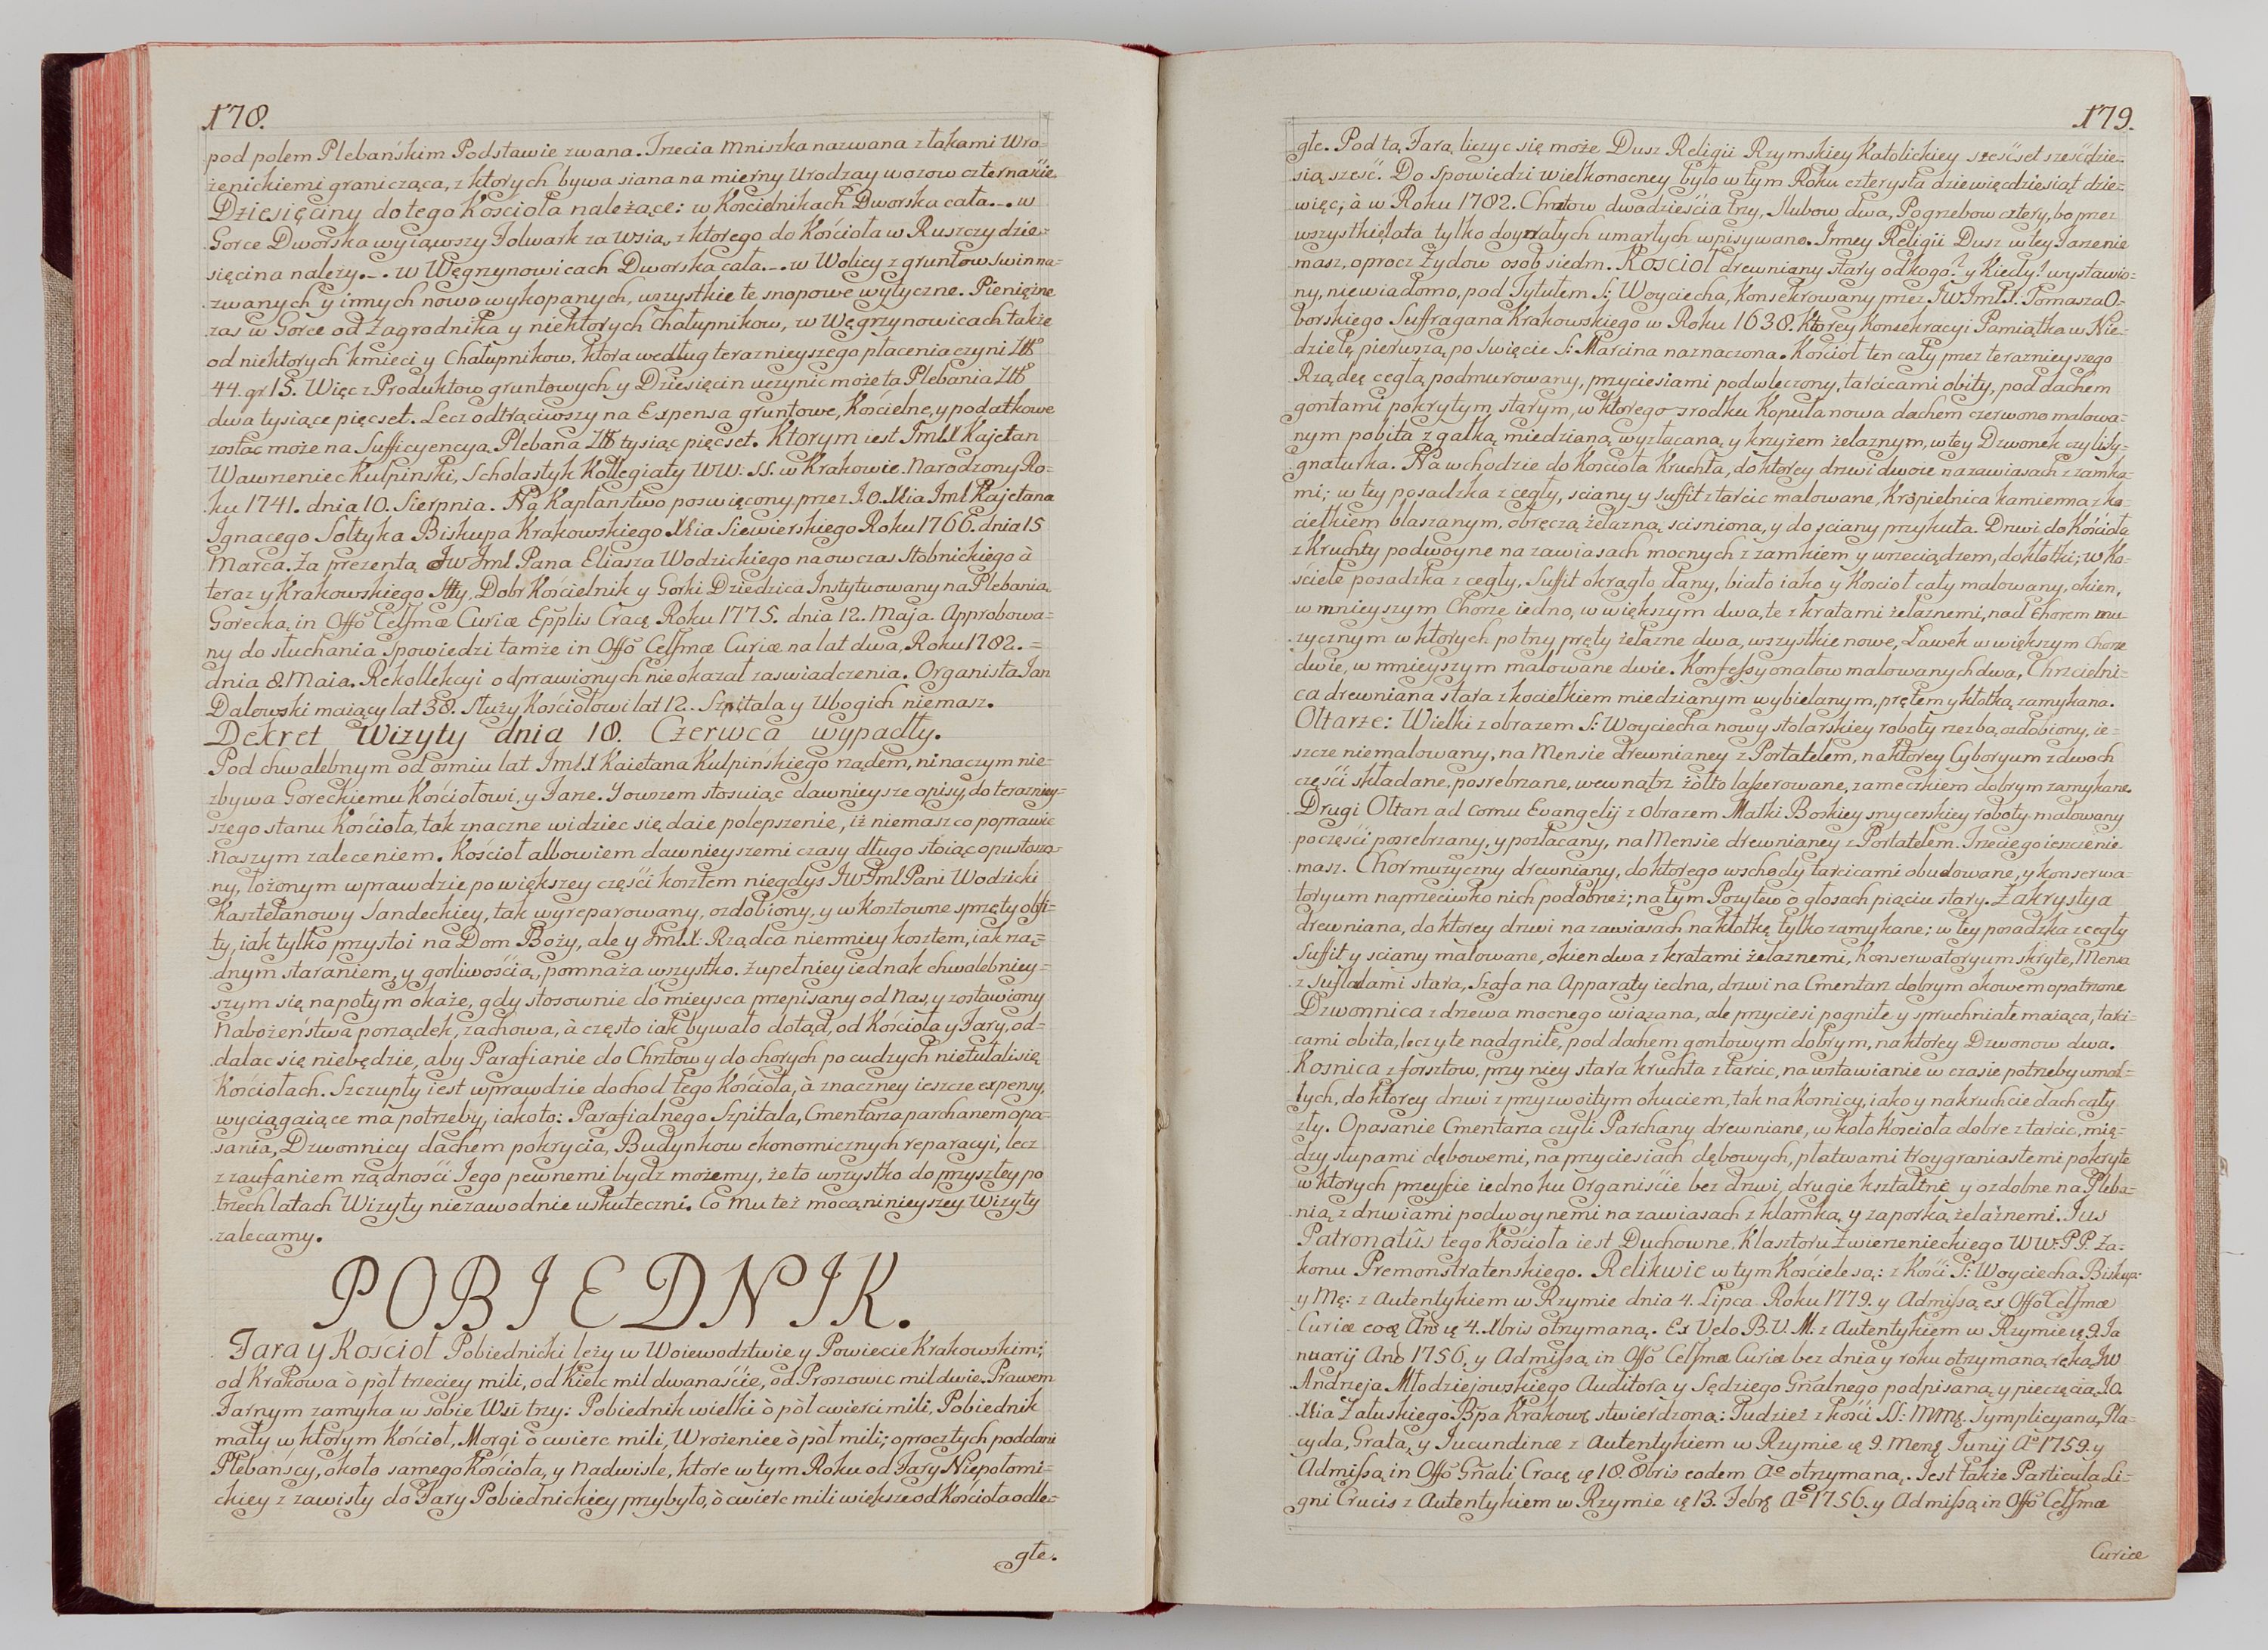 178.
pod polem Plebańskim Podstawie zwana. Trzecia Mniszka nazwana z łąkami Wro-
żenickiemi granicząca, z ktorych bywa siana na mierny Urodzay wozow czternaście
Dziesięciny do tego Kościoła należące: w Kościelnikach Dworska cała._. w
Gorce Dworska wyiąwszy Folwark za Wsią, z ktorego do Kościoła w Ruszczy dzie-
sięcina należy._. w Węgrzynowicach Dworska cała._. w Wolicy z gruntow Swinna-
zwanych y innych nowo wykopanych, wszystkie te snopowe wytyczne. Pieniężne
zas w Gorce od Zagrodnika y niektorych Chałupnikow, w Węgrzynowicach także
od niektorych kmieci y Chałupnikow, ktora według teraznieyszego płacenia czyni Złł
44. gr 15. Więc z Produktow gruntowych y Dziesięcin uczynic może ta Plebania Złł
dwa tysiące pięcset. Lecz odtrąciwszy na Expensa gruntowe, Kościelne, y podatkowe
zostac może na Sufficyencyą Plebana Złł tysiąc pięcset. Ktorym iest JmlX Kajetan
Wawrzeniec Kulpinski, Scholastyk Kollegiaty WW: SS. w Krakowie. Narodzony Ro-
ku 1741. dnia 10. Sierpnia. Na Kapłanstwo poswięcony przez J.O. Xcia Jml Kajetana
Ignacego Sołtyka Biskupa Krakowskiego Xcia Siewierskiego Roku 1766. dnia 15
Marca. Za prezentą JW Jml Pana Eliasza Wodzickiego naowczas Stobnickiego à
teraz y Krakowskiego Stty, Dobr Kościelnik y Gorki Dziedzica Instytuowany na Plebanią
Gorecką in Offo Celsmæ Curiæ Epplis Cracę Roku 1775. dnia 12. Maja. Approbowa-
ny do słuchania Spowiedzi tamże in Offo Celsmæ Curiæ na lat dwa, Roku 1782. =
dnia 8. Maia. Rekollekcyi odprawionych nie okazał zaswiadczenia. Organista Jan
Dalowski maiący lat 38. służy Kościołowi lat 12. Szpitala y Ubogich niemasz.
Dekret Wizyty dnia 18. Czerwca wypadły.
Pod chwalebnym od osmiu lat JmlX Kaietana Kulpińskiego rządem, ni naczym nie-
zbywa Goreckiemu Kościołowi, y Farze. Y owszem stosuiąc dawnieysze opisy, do teraźniey-
szego stanu Kościoła, tak znaczne widziec się daie polepszenie, iż niemasz co poprawic
Naszym zaleceniem. Kościoł albowiem dawnieyszemi czasy długo stoiąc opustoszo-
ny, łożonym wprawdzie po większey części kosztem niegdys JW Jml Pani Wodzicki
Kasztelanowy Sandeckiey, tak wyreparowany, ozdobiony, y w kosztowne sprzęty obfi-
ty, iak tylko przystoi na Dom Boży, ale y JmlX: Rządca niemniey kosztem, iak rzą-
dnym staraniem, y gorliwością, pomnaża wszystko. Zupełniey iednak chwalebniey-
szym się napotym okaże, gdy stosownie do mieysca przepisany od Nas, y zostawiony
Nabożeństwa porządek, zachowa, à często iak bywało dotąd, od Kościoła y Fary, od-
dalac się niebędzie, aby Parafianie do Chrztow y do chorych po cudzych nietulali się
Kościołach. Szczupły iest wprawdzie dochod tego Kościoła, à znaczney ieszcze expensy,
wyciągaiące ma potrzeby, iako to: Parafialnego Szpitala, Cmentarza parchanem opa-
sania, Dzwonnicy dachem pokrycia, Budynkow ekonomicznych reparacyi, lecz
z zaufaniem rządności Jego pewnemi bydz możemy, że to wszystko do przyszłey po
trzech latach Wizyty niezawodnie uskuteczni. Co Mu też mocą ninieyszey Wizyty
zalecamy.
POBIEDNIK.
Fara y Kościoł Pobiednicki leży w Woiewodztwie y Powiecie Krakowskim;
od Krakowa ò pòł trzeciey mili, od Kielc mil dwanaście, od Proszowic mil dwie. Prawem
Farnym zamyka w sobie Wsi trzy: Pobiednik wielki ò pòł cwierci mili, Pobiednik
mały w ktorym Kościoł, Morgi ò cwierc mili, Wrożenice ò pòł mili; oprocz tych poddani
Plebańscy, około samego Kościoła, y Nadwisle, ktore w tym Roku od Fary Niepołomi-
ckiey z zawisły do Fary Pobiednickiey przybyło, ò cwierc mili większe od Kościoła odle-
głe.
179.
głe. Pod tą Farą liczyc się może Dusz Religii Rzymskiey Katolickiey sześcset sześcdzie-
siąsześć. Do Spowiedzi wielkonocney było w tym Roku czterysta dziewięcdziesiąt dzie-
więc, à w Roku 1782. Chrztow dwadzieścia trzy, Slubow dwa, Pogrzebow cztery, bo przez
wszystkie lata tylko doyrzałych umarłych wpisywano. Inney Religii Dusz w tey Farze nie
masz, oprocz Żydow osob siedm. Kościoł drewniany stary od kogo? y Kiedy? wystawio-
ny, niewiadomo, pod Tytułem S: Woyciecha, Konsekrowany przez JW JmlX. Tomasza O-
borskiego Suffragana Krakowskiego w Roku 1638. Ktorey Konsekracyi Pamiątka w Nie-
dzielę pierwszą po Swięcie S: Marcina naznaczona. Kościoł ten cały przez teraznieyszego
Rządcę cegłą podmurowany, przyciesiami podwleczony, tarcicami obity, pod dachem
gontami pokrytym starym, w ktorego srodku Kopuła nowa dachem czerwono malowa-
nym pobita z gałką miedzianą wyzłacaną y krzyżem żelaznym, w tey Dzwonek czyli Sy-
gnaturka. Na wchodzie do Kościoła Kruchta, do ktorey drzwi dwoie na zawiasach z zamka-
mi; w tey posadzka z cegły, sciany y suffit z tarcic malowane, Kropielnica kamienna z ko-
ciełkiem blaszanym, obręczą żelazną scisniona, y do sciany przykuta. Drzwi do Kościoła
z Kruchty podwoyne na zawiasach mocnych z zamkiem y wrzeciądzem, do kłotki; w Ko-
ściele posadzka z cegły, Suffit okrągło dany, biało iako y Kościoł cały malowany, okien,
w mnieyszym Chorze iedno, w większym dwa, te z kratami żelaznemi, nad Chorem mu-
zycznym w ktorych potny pręty żelazne dwa, wszystkie nowe, Ławek w większym Chorze
dwie, w mnieyszym malowane dwie. Konfessyonałow malowanych dwa, Chrzcielni-
ca drewniana stara z kociełkiem miedzianym wybielanym, prętem y kłotką zamykana.
Ołtarze: Wielki z obrazem S: Woyciecha nowy stolarskiey roboty rzezbą ozdobiony, ie-
szcze niemalowany, na Mensie drewnianey z Portatelem, na ktorey Cyboryum z dwoch
części składane, posrebrzane, wewnątrz żółto lakierowane, zameczkiem dobrym zamykane.
Drugi Ołtarz ad Cornu Evangelij z Obrazem Matki Boskiey snycerskiey roboty malowany
po części posrebrzany, y pozłacany, na Mensie drewnianey z Portatelem. Trzeciego ieszcze nie
masz. Chor muzyczny drewniany, do ktorego wschody tarcicami obudowane, y konserwa-
toryum naprzeciwko nich podobneż; na tym Pozytew ò głosach piąciu stary. Zakrystya
drewniana, do ktorey drzwi na zawiasach na kłotkę tylko zamykane; w tey posadzka z cegły
Suffit y sciany malowane, okien dwa z kratami żelaznemi, Konserwatoryum skryte, Mensa
z sufladami stara, Szafa na Apparaty iedna, drzwi na Cmentarz dobrym okowem opatrzone
Dzwonnica z drzewa mocnego wiązana, ale przyciesi pogniłe y spruchniałe maiąca, tarci-
cami obita, lecz y te nadgniłe, pod dachem gontowym dobrym, na ktorey Dzwonow dwa.
Kosnica z forsztow, przy niey stara kruchta z tarcic, na wstawianie w czasie potrzeby umar-
łych, do ktorey drzwi z przyzwoitym okuciem, tak na Kosnicy, iako y na kruchcie dach cały
zły. Opasanie Cmentarza czyli Parchany drewniane, w koło Kościoła dobre z tarcic, mię-
dzy słupami dębowemi, na przyciesiach dębowych, płatwami troygraniastemi pokryte
w ktorych przeyście iedno ku Organiście bez drzwi, drugie kształtne y ozdobne na Pleba-
nią z drzwiami podwoynemi na zawiasach z klamką y zaporką żelaznemi. Jus
Patronatûs tego Kościoła iest Duchowne, Klasztoru Zwierzenieckiego WW: PP. Za-
konu Premonstratenskiego. Relikwie w tym Kościele są: z Kości S: Woyciecha Biskup:
y Mę: z Autentykiem w Rzymie dnia 4. Lipca Roku 1779. y Admissą ex Offo Celsmæ
Curiæ eoę Año ię 4. Xbris otrzymaną. Ex Velo B.V.M: z Autentykiem w Rzymie ię 9. Ja
nuarij Año 1756. y Admissą in Offo Celsmæ Curiæ bez dnia y roku otrzymaną ręką JW
Andrzeja Młodziejowskiego Auditora y Sędziego Gñalnego podpisaną y pieczęcią JO.
Xcia Załuskiego Bpa Krakowę stwierdzoną: Tudzież z kości SS: MMę Symplicyana, Pla-
cyda, Grata, y Jucundinæ z Autentykiem w Rzymie ię 9. Menę Junij Aº 1759. y
Admissą in Offo Gñali Cracę ię 18. 8bris eodem Aº otrzymaną. Jest także Particula Li-
gni Crucis z Autentykiem w Rzymie ię 13. Febrę Aº 1756. y Admissą in Offo Celsmæ
Curiæ